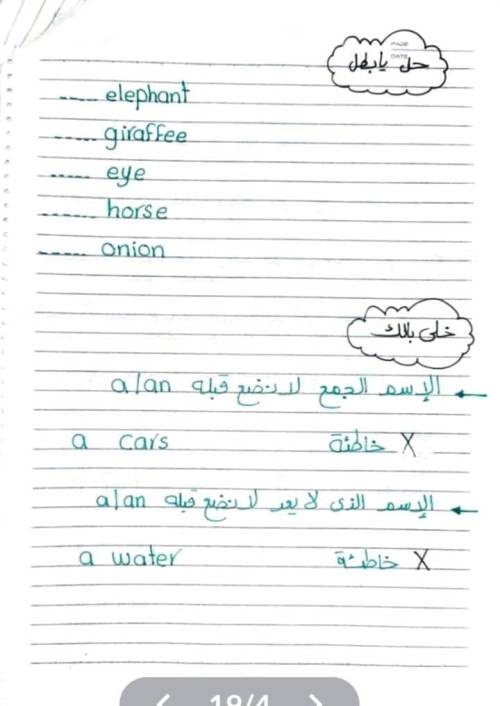 PAGE
DATE
حل يابطل
----- elephant
----- giraffee
----- eye
------ horse
----- onion
خلى بالك
← الإسم الجمع لا نضع قبله a/an
a cars خاطئة X
← الإسم الذى لا يعد لا نضع قبله a/an
a water خاطئة X
19/4